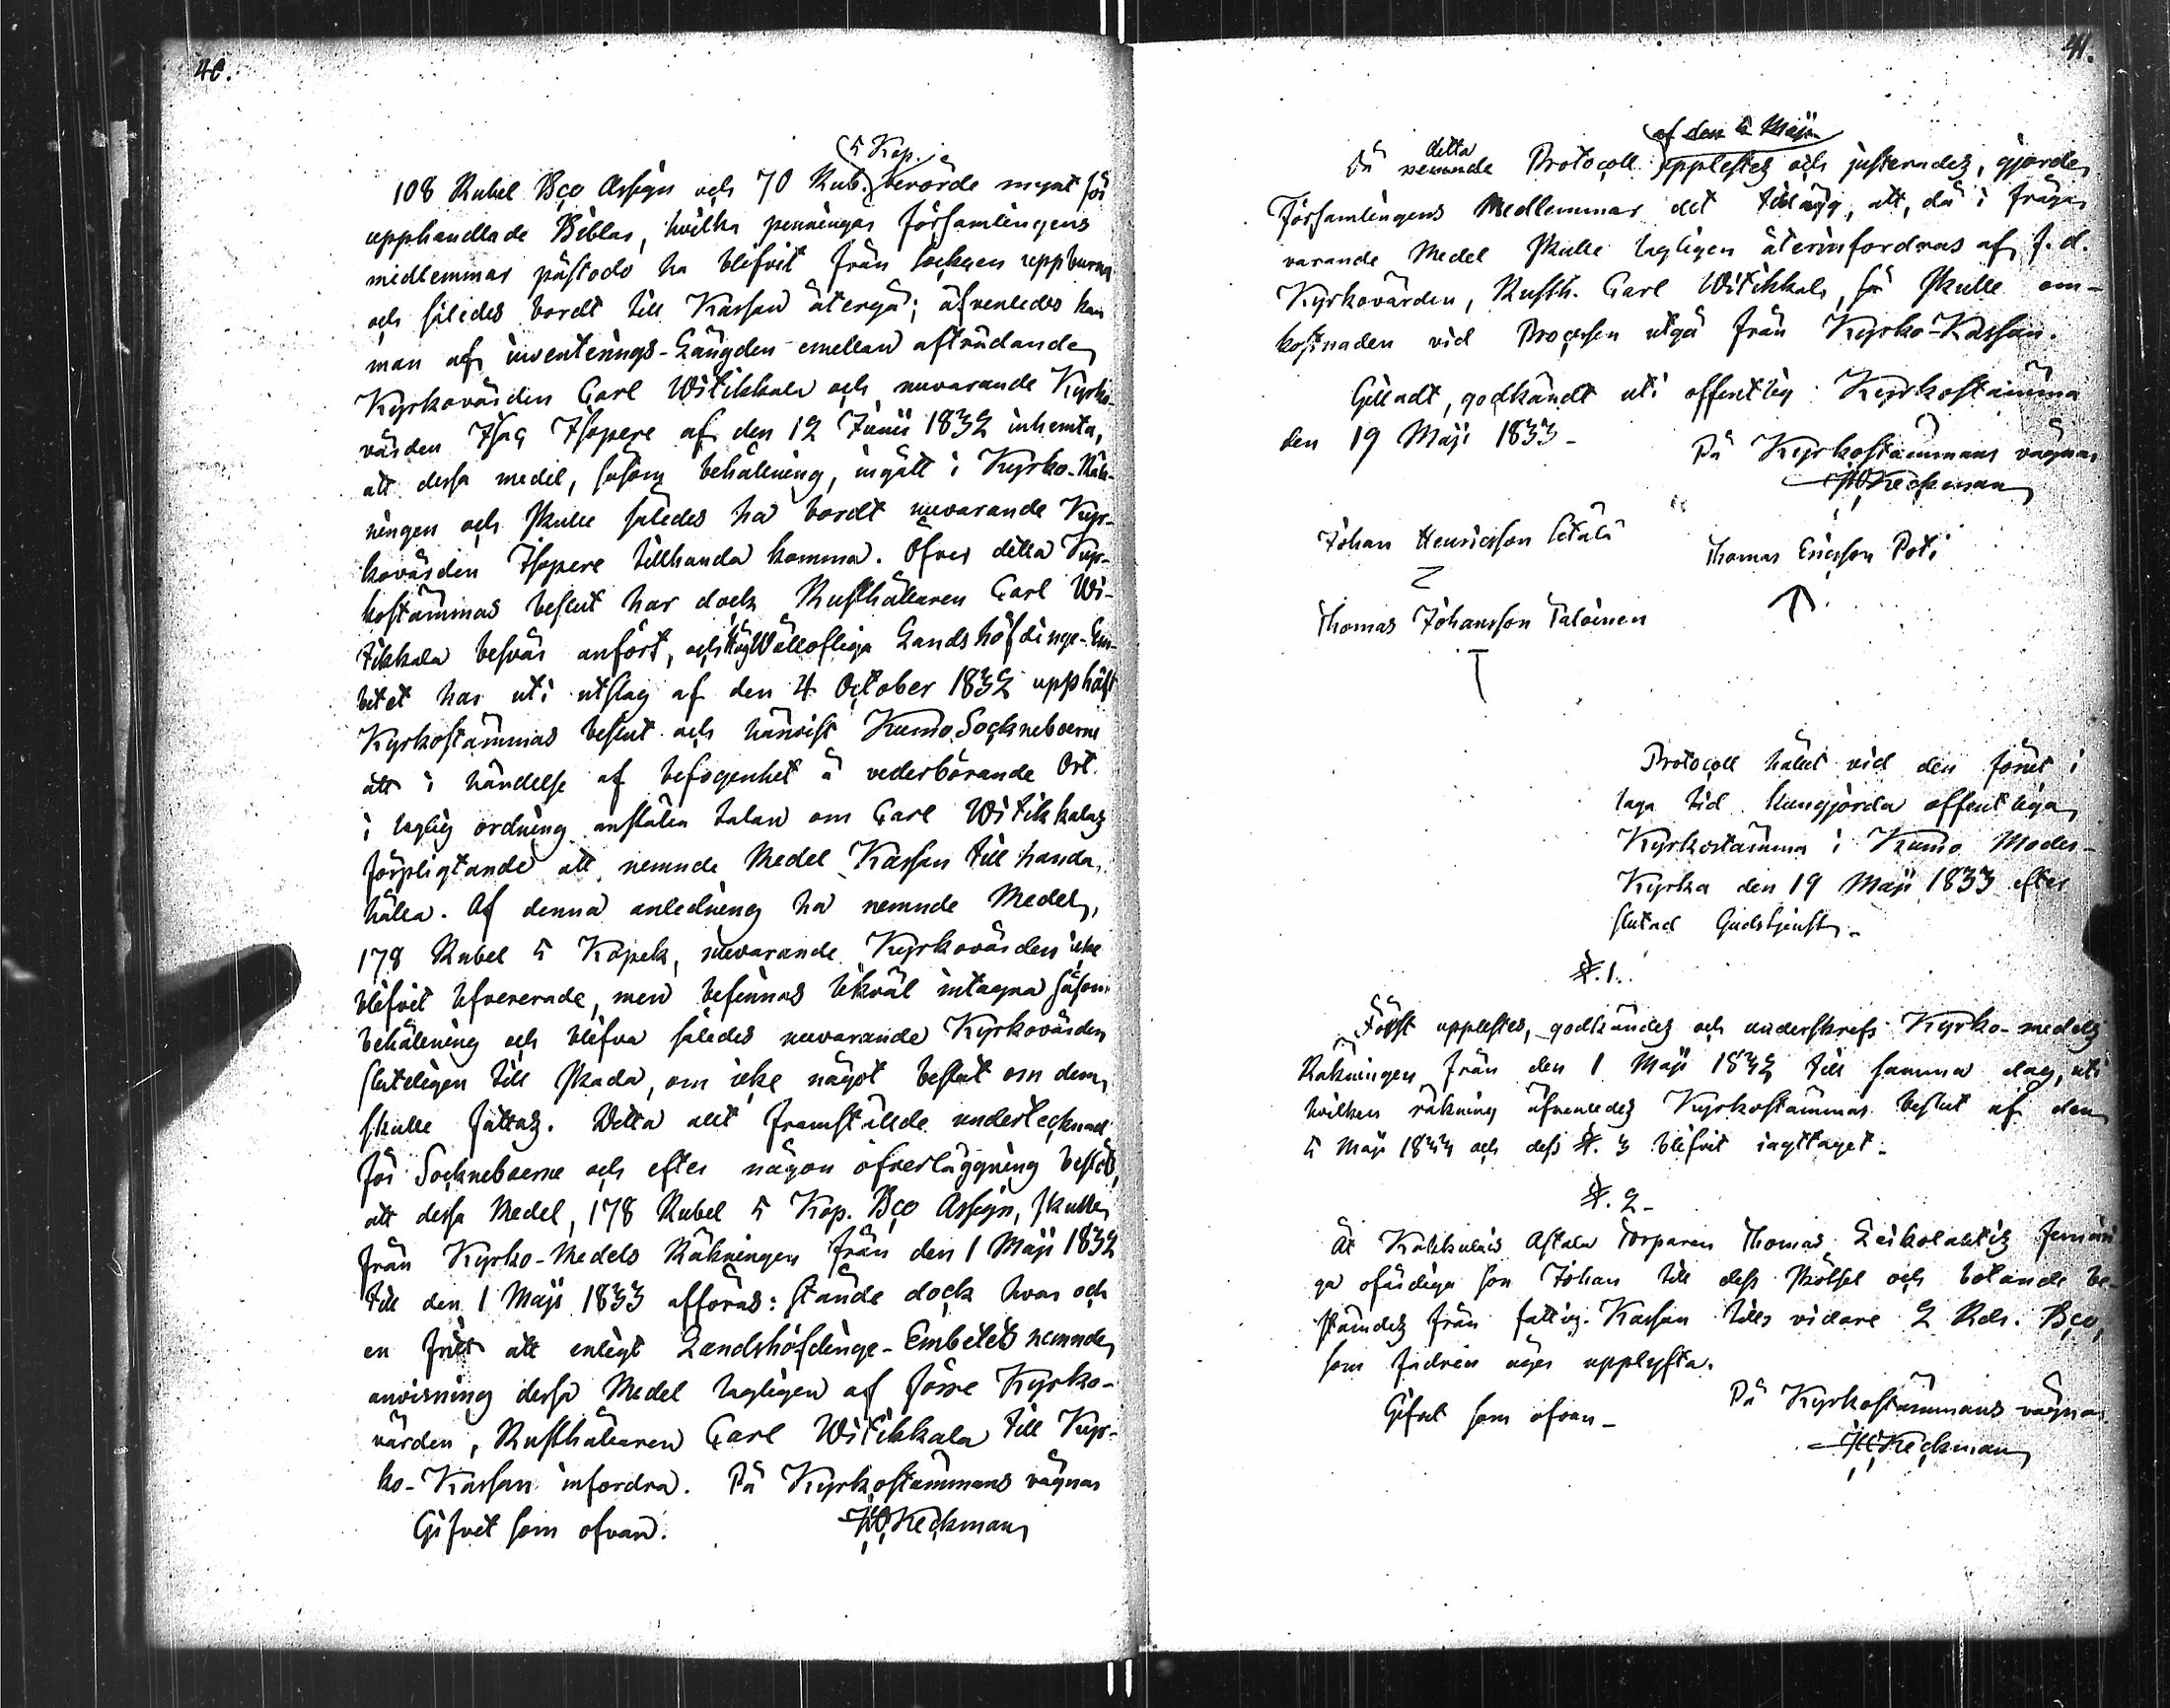 40.
5 Kop.
108 Rubel Bco Assign och 70 Rub. berörde mynt för
upphandlade Biblar, hvilka penningar församlingens
medlemmar påstodo ha blifvit från Socknen uppburna
och således bordt till Kassan återgå; äfvenledes kan
man af inventerings-Längden emellan afträdande
Kyrkovärden Carl Witikkala och nuvarande Kyrko-
värden Isac Isopere af den 12 Junii 1832 inhemta,
att dessa medel, såsom behållning, ingått i Kyrko-Räk-
ningen och skulle således ha bordt nuvarande Kyr-
kovärden Isopere tillhanda komma. Öfver detta Kyr-
kostämmas beslut har dock Rusthållaren Carl Wi-
tikkala besvär anfört, och HögWällofliga Landshöfdinge-Em-
betet har uti utslag af den 4 October 1832 upphäft
Kyrkostämmas beslut och hänvist Kumo Sockneboerne
att i händelse af befogenhet å vederbörande Ort
i laglig ordning anställa talan om Carl Witikkalas
förpligtande att nemnde Medel Kassan till handa
hålla. Af denna anledning ha nemnde Medel,
178 Rubel 5 Kopek, nuvarande Kyrkovärden icke
blifvit lefvererade, men befinnas likväl intagna såsom
behållning och blifva således nuvarande Kyrkovärden
sluteligen till skada, om icke något beslut om dem
skulle fattas. Detta allt framställde undertecknad
för Sockneboerne och efter någon öfverläggning beslöts,
att dessa Medel, 178 Rubel 5 Kop. Bco Assign, skulle
från Kyrko-Medels Räkningen från den 1 Maji 1832
till den 1 Maji 1833 afföras: stånde dock hvar och
en fritt att enligt Landshöfdinge-Embetets nemnde
anvisning dessa Medel lagligen af förre Kyrko-
värden, Rusthållaren Carl Witikkala till Kyr-
ko-Kassan infordra. På Kyrkostämmans vägnar
Gifvet som ofvan. Keckman
41.
detta af den 5 Maji
Då nemnde Protocoll upplestes och justerades, gjorde
Församlingens Medlemmar det tillägg, att, då i fråga
varande Medel skulle lagligen återinfordras af f.d.
Kyrkovärden, Rusth. Carl Witikkala, så skulle om-
kostnaden vid Processen utgå från Kyrko-Kassan.
Gilladt, godkändt uti offentlig Kyrkostämma
den 19 Maji 1833 -
På Kyrkostämmans vägnar
Keckman
Johan Henricsson
Thomas Ericsson Poti
Thomas Johansson Taloinen
Protocoll hållet vid den förut i
laga tid kungjorda offentliga
Kyrkostämma i Kumo Moder-
Kyrka den 19 Maji 1833 efter
slutad Gudstjenst -
§. 1.
Först upplestes, godkändes och underskrefs Kyrko-medels
Räkningen från den 1 Maji 1832 till samma dag, uti
hvilken räkning äfvenledes Kyrkostämmas beslut af den
5 Maji 1833 och dess §. 3 blifvit iagttaget -
§. 2 -
Åt Kakkulais Astala Torparen Thomas
ga ofärdiga son Johan till dess skötsel och botande be-
ståndes från fattig-Kassan tills vidare 2 Rub. Bco,
som fadren äger upplyfta.
Gifvet som ofvan -
På Kyrkostämmans vägnar
Keckman